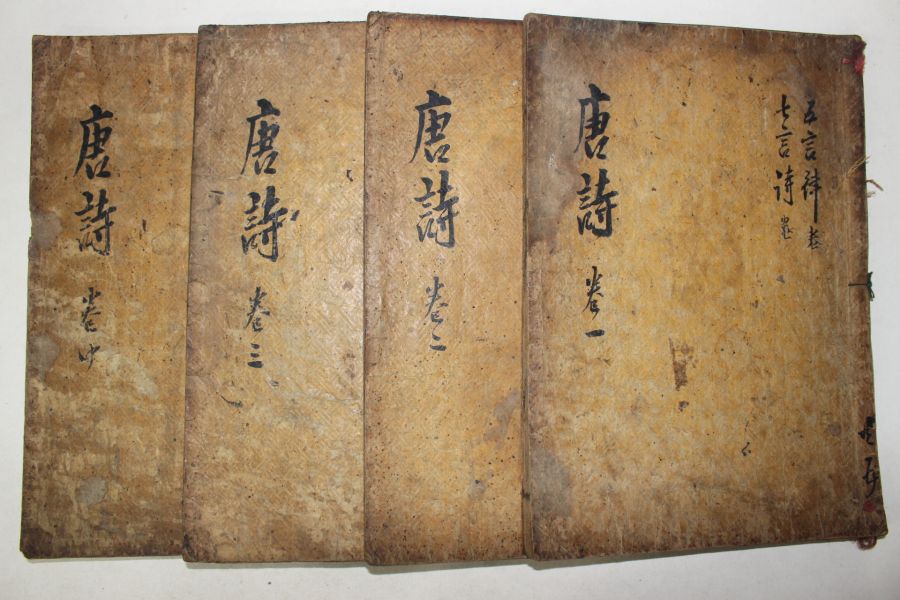 五言律
七言詩
唐詩 卷一
唐詩 卷二
唐詩 卷三
唐詩 卷四